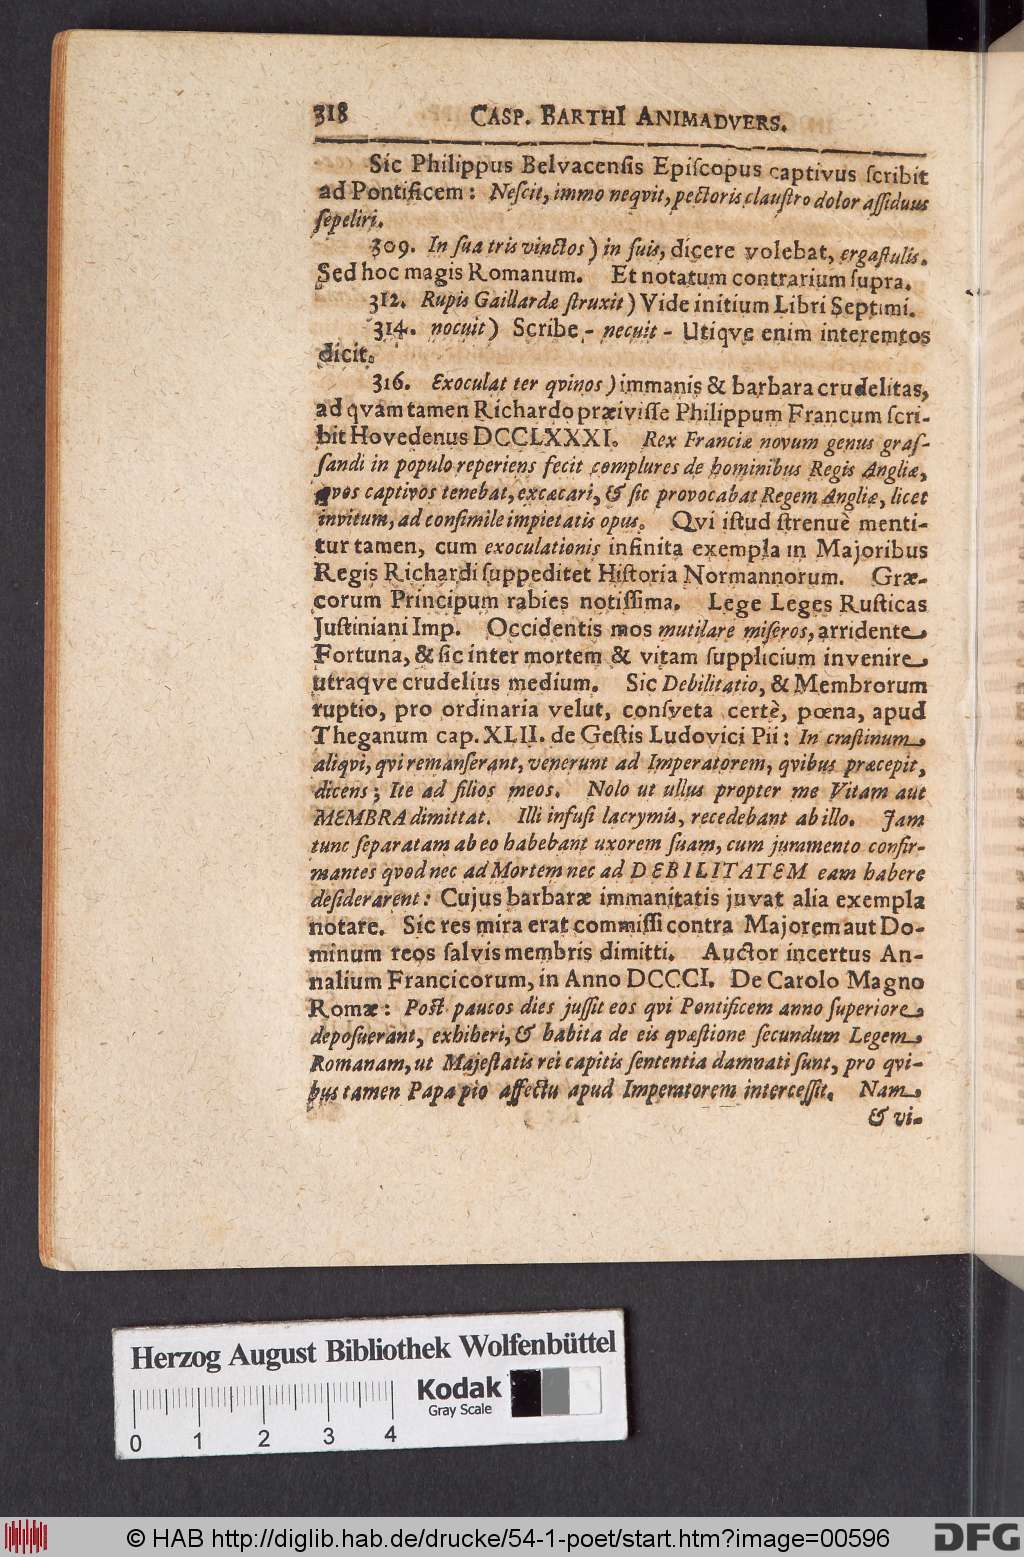 318 CASP. BARTHI ANIMADVERS.
Sic Philippus Belvacensis Episcopus captivus scribit
ad Pontificem: Nescit, immo neqvit, pectoris claustro dolor assiduus
sepeliri.
309. In sua tris vinctos) in suis, dicere volebat, ergastulis.
Sed hoc magis Romanum. Et notatum contrarium supra.
312. Rupis Gaillardæ struxit) Vide initium Libri Septimi.
314. nocuit) Scribe, - necuit - Utiqve enim interemtos
dicit.
316. Exoculat ter qvinos) immanis & barbara crudelitas,
ad qvam tamen Richardo præivisse Philippum Francum scri-
bit Hovedenus DCCLXXXI. Rex Franciæ novum genus gras-
sandi in populo reperiens fecit complures de hominibus Regis Angliæ,
qvos captivos tenebat, excæcari, & sic provocabat Regem Angliæ, licet
invitum, ad consimile impietatis opus. Qvi istud strenuè menti-
tur tamen, cum exoculationis infinita exempla in Majoribus
Regis Richardi suppeditet Historia Normannorum. Græ-
corum Principum rabies notissima. Lege Leges Rusticas
Justiniani Imp. Occidentis mos mutilare miseros, arridente
Fortuna, & sic inter mortem & vitam supplicium invenire
utraqve crudelius medium. Sic Debilitatio, & Membrorum
ruptio, pro ordinaria velut, consveta certè, pœna, apud
Theganum cap. XLII. de Gestis Ludovici Pii: In crastinum
aliqvi, qvi remanserant, venerunt ad Imperatorem, qvibus præcepit,
dicens; Ite ad filios meos. Nolo ut ullus propter me Vitam aut
MEMBRA dimittat. Illi infusi lacrymis, recedebant ab illo. Jam
tunc separatam ab eo habebant uxorem suam, cum juramento confir-
mantes qvod nec ad Mortem nec ad DEBILITATEM eam habere
desiderarent: Cujus barbaræ immanitatis juvat alia exempla
notare. Sic res mira erat commissi contra Majorem aut Do-
minum reos salvis membris dimitti. Auctor incertus An-
nalium Francicorum, in Anno DCCCI. De Carolo Magno
Romæ: Post paucos dies jussit eos qvi Pontificem anno superiore
deposuerant, exhiberi, & habita de eis qvæstione secundum Legem
Romanam, ut Majestatis rei capitis sententia damnati sunt, pro qvi-
bus tamen Papa pio affectu apud Imperatorem intercessit. Nam
& vi-
Herzog August Bibliothek Wolfenbüttel
Kodak
Gray Scale
0 1 2 3 4
© HAB http://diglib.hab.de/drucke/54-1-poet/start.htm?image=00596
DFG